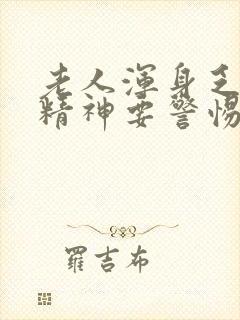 老人渾身乏
精神要警惕
羅吉布